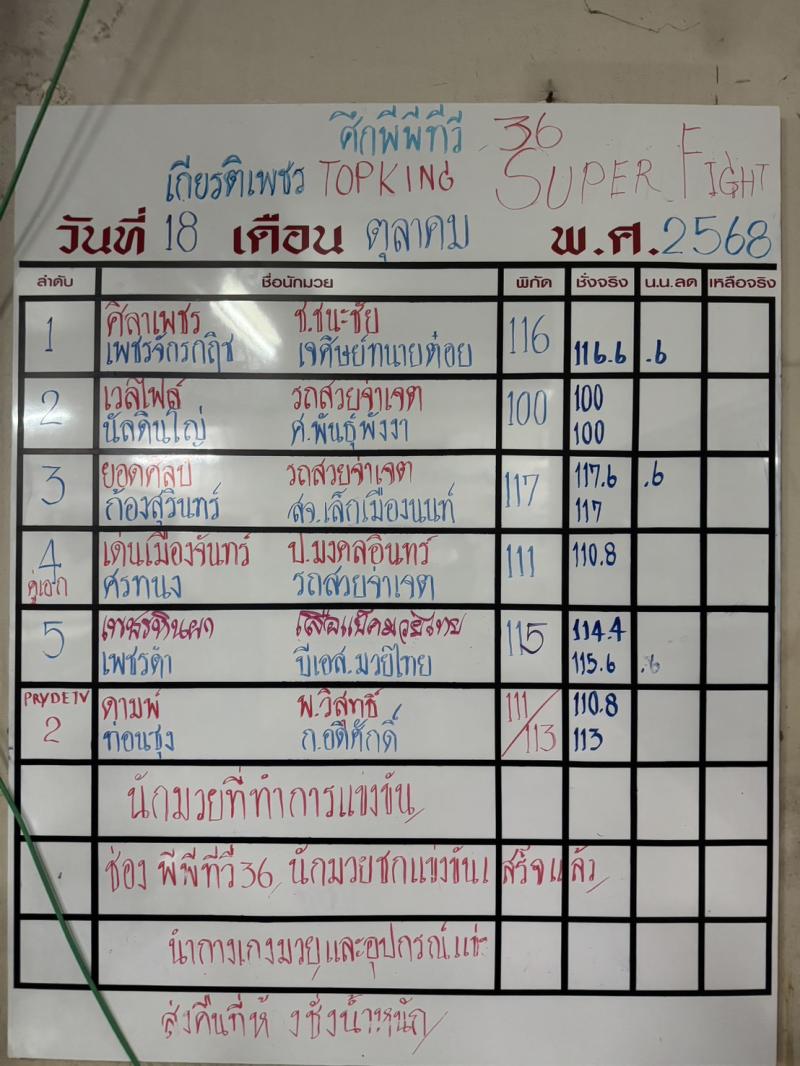 ศึกพีพีทีวี 36
เกียรติเพชร TOPKING SUPER FIGHT
วันที่ 18 เดือน ตุลาคม พ.ศ. 2568
ลำดับ ชื่อนักมวย พิกัด ชั่งจริง น.น.ลด เหลือจริง
1 ศิลาเพชร ช.ชนะชัย 116
เพชรจักรกฤช เจศิษย์ทนายต๋อย 116.6 .6
2 เวลไฟล์ รถสวยจ่าเจต 100 100
นัสดินใหญ่ ศ.พันธุ์พังงา 100
3 ยอดศิลป์ รถสวยจ่าเจต 117 117.6 .6
ก้องสุรินทร์ สจ.เล็กเมืองนนท์ 117
4 เด่นเมืองจันทร์ ป.มงคลอินทร์ 111 110.8
คู่เอก ศรทนง รถสวยจ่าเจต
5 เพชรหินผา เสือแบ็คมวยไทย 115 114.4
เพชรดำ บีเอส.มวยไทย 115.6 .6
PRYDETV ดามพ์ พ.วิสุทธิ์ 111/113 110.8
2 ท่อนซุง ก.อดิศักดิ์ 113
นักมวยที่ทำการแข่งขัน
ช่อง พีพีทีวี 36 นักมวยชกแข่งขันเสร็จแล้ว
นำกางเกงมวยและอุปกรณ์แข่ง
ส่งคืนที่ห้องชั่งน้ำหนัก